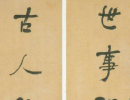 世事
古人